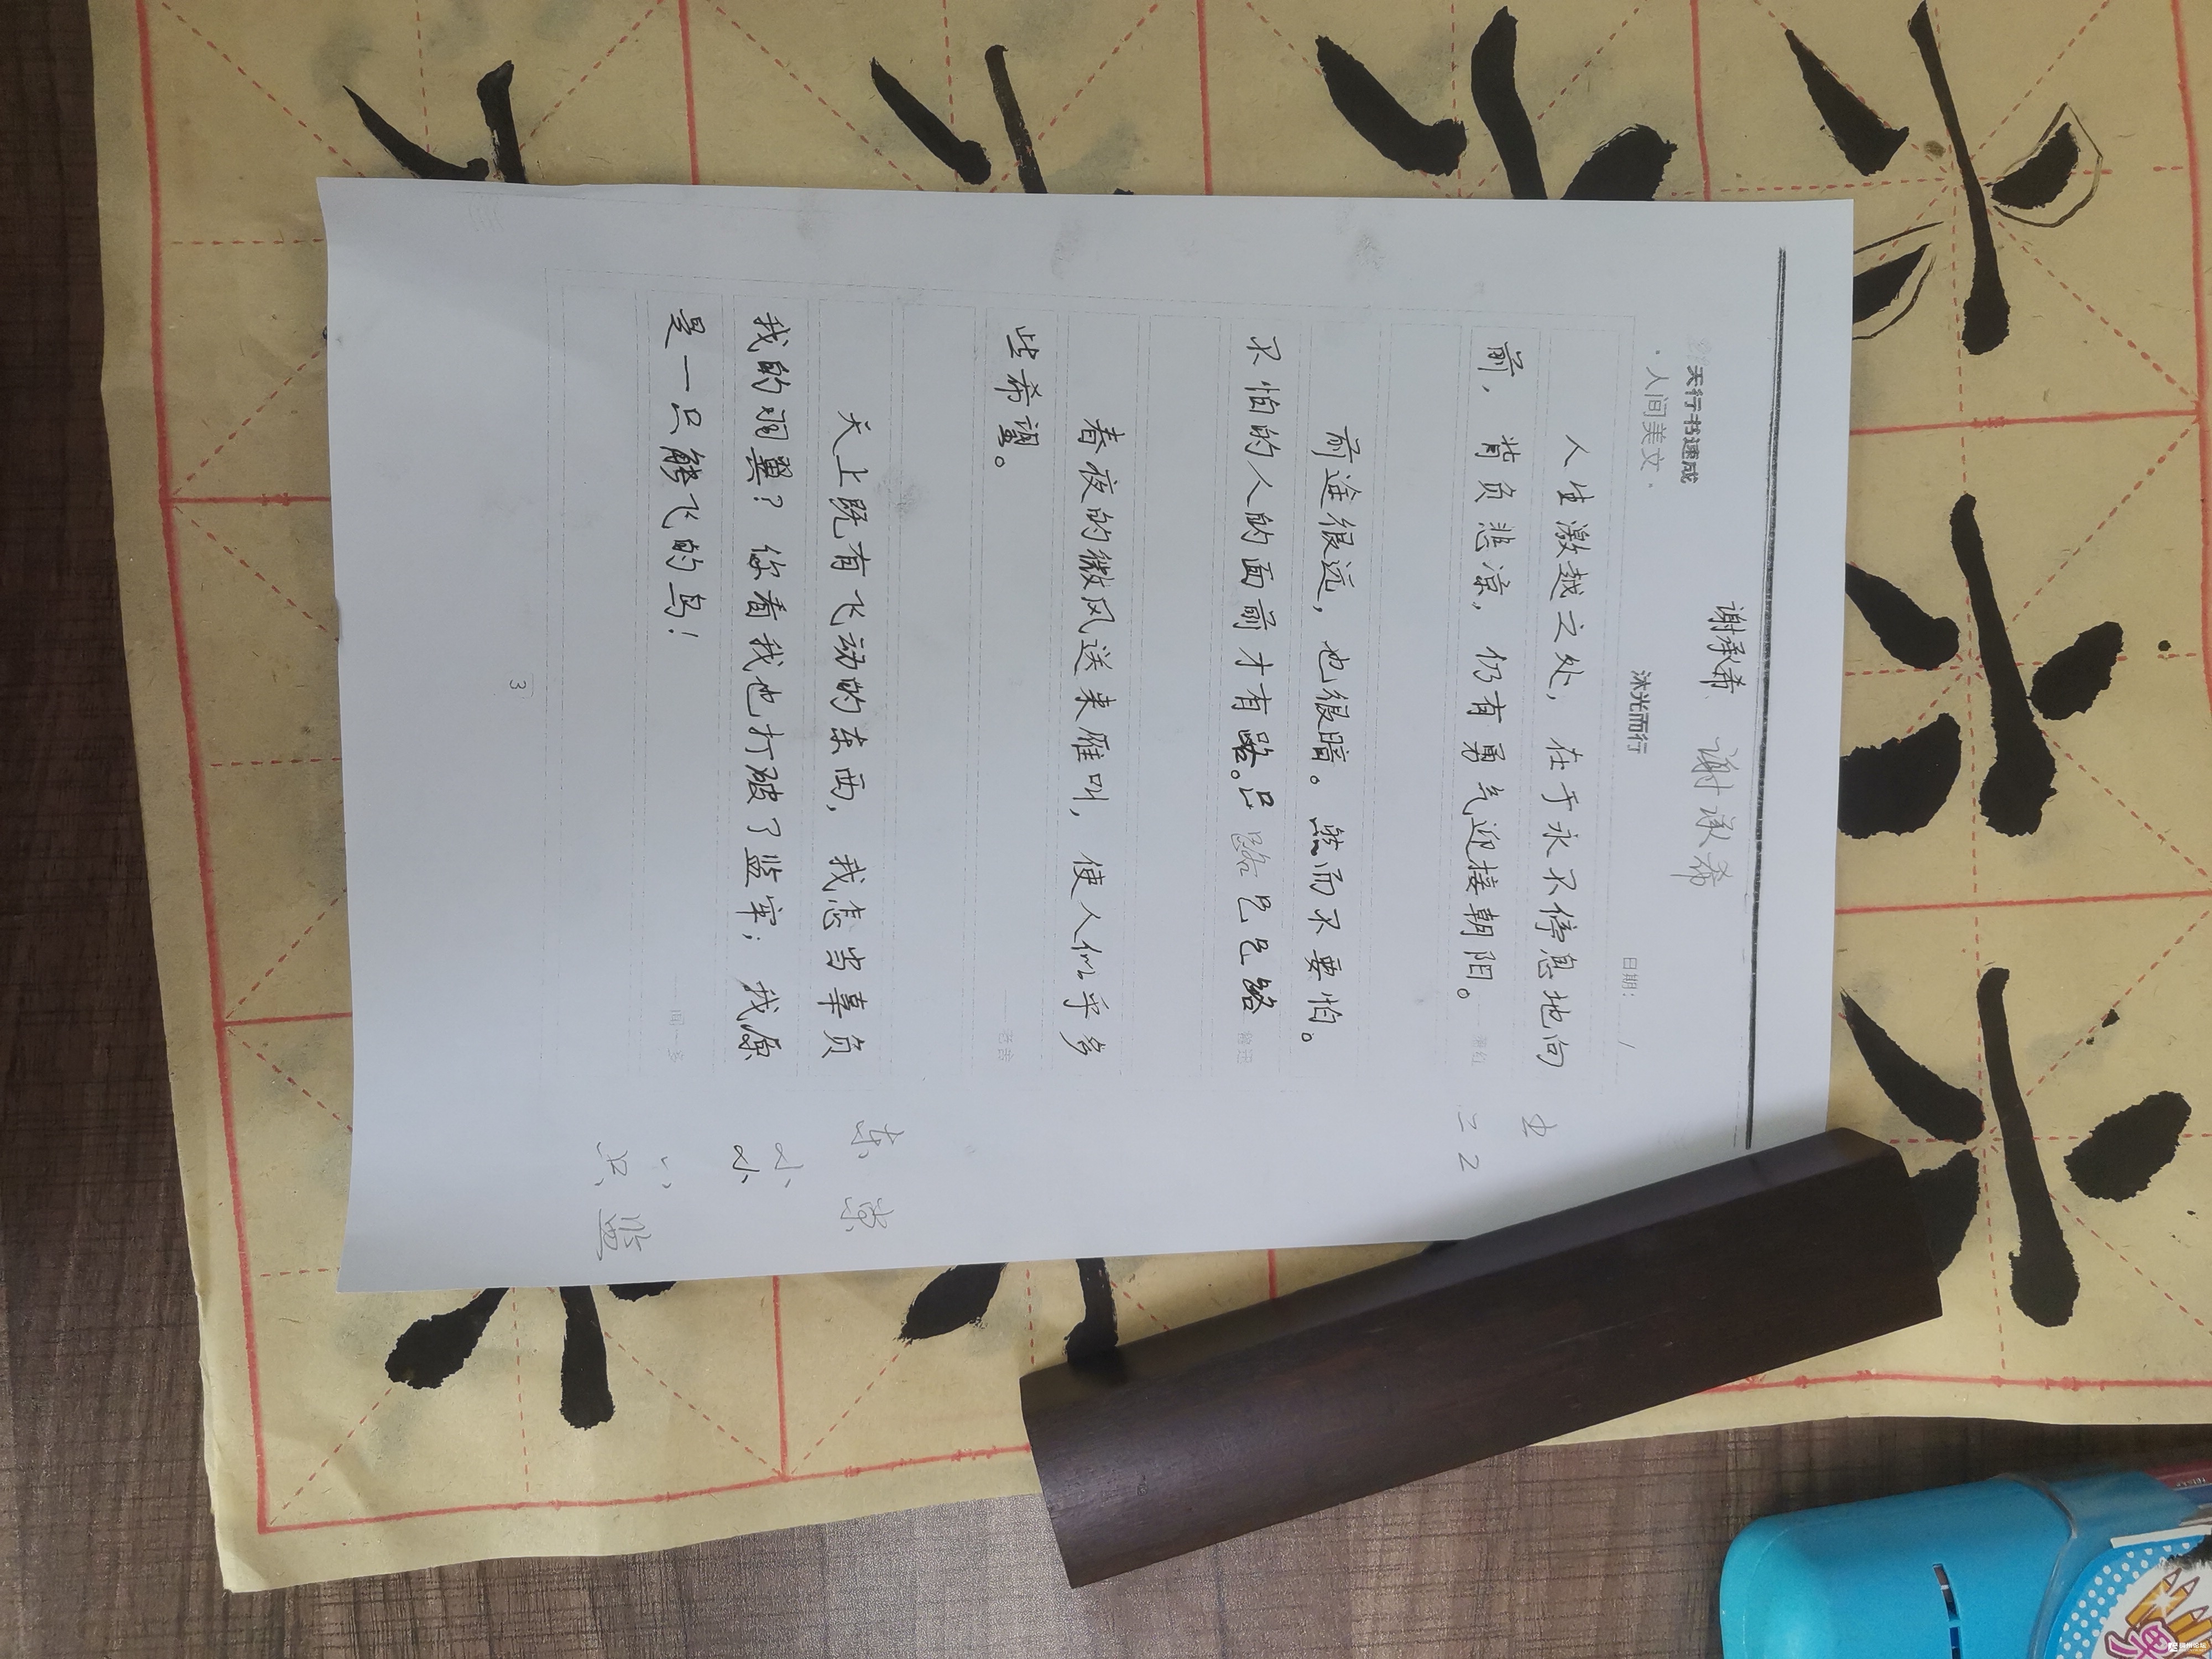 谢承希 谢承希
天行书速成
·人间美文·
沐光而行
日期: /
人生激越之处，在于永不停息地向
前，背负悲凉，仍有勇气迎接朝阳。
萧红
前途很远，也很暗。然而不要怕。
不怕的人的面前才有路。
鲁迅
春夜的微风送来雁叫，使人似乎多
些希望。
——老舍
天上既有飞动的东西，我怎当辜负
我的羽翼？你看我也打破了监牢；我原
是一只能飞的鸟！
——闻一多
东
监
3